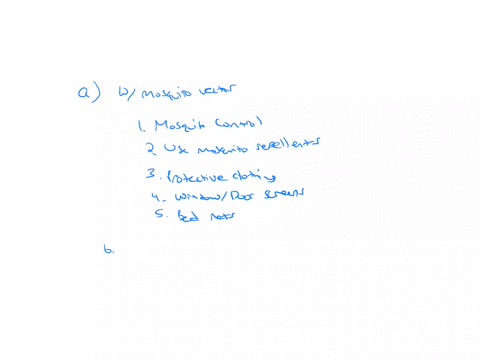 a) w/ mosquito vector
1. Mosquito Control
2 Use mosquito repellents
3. Protective clothing
4. Window/Door screens
5. Bed nets
b.